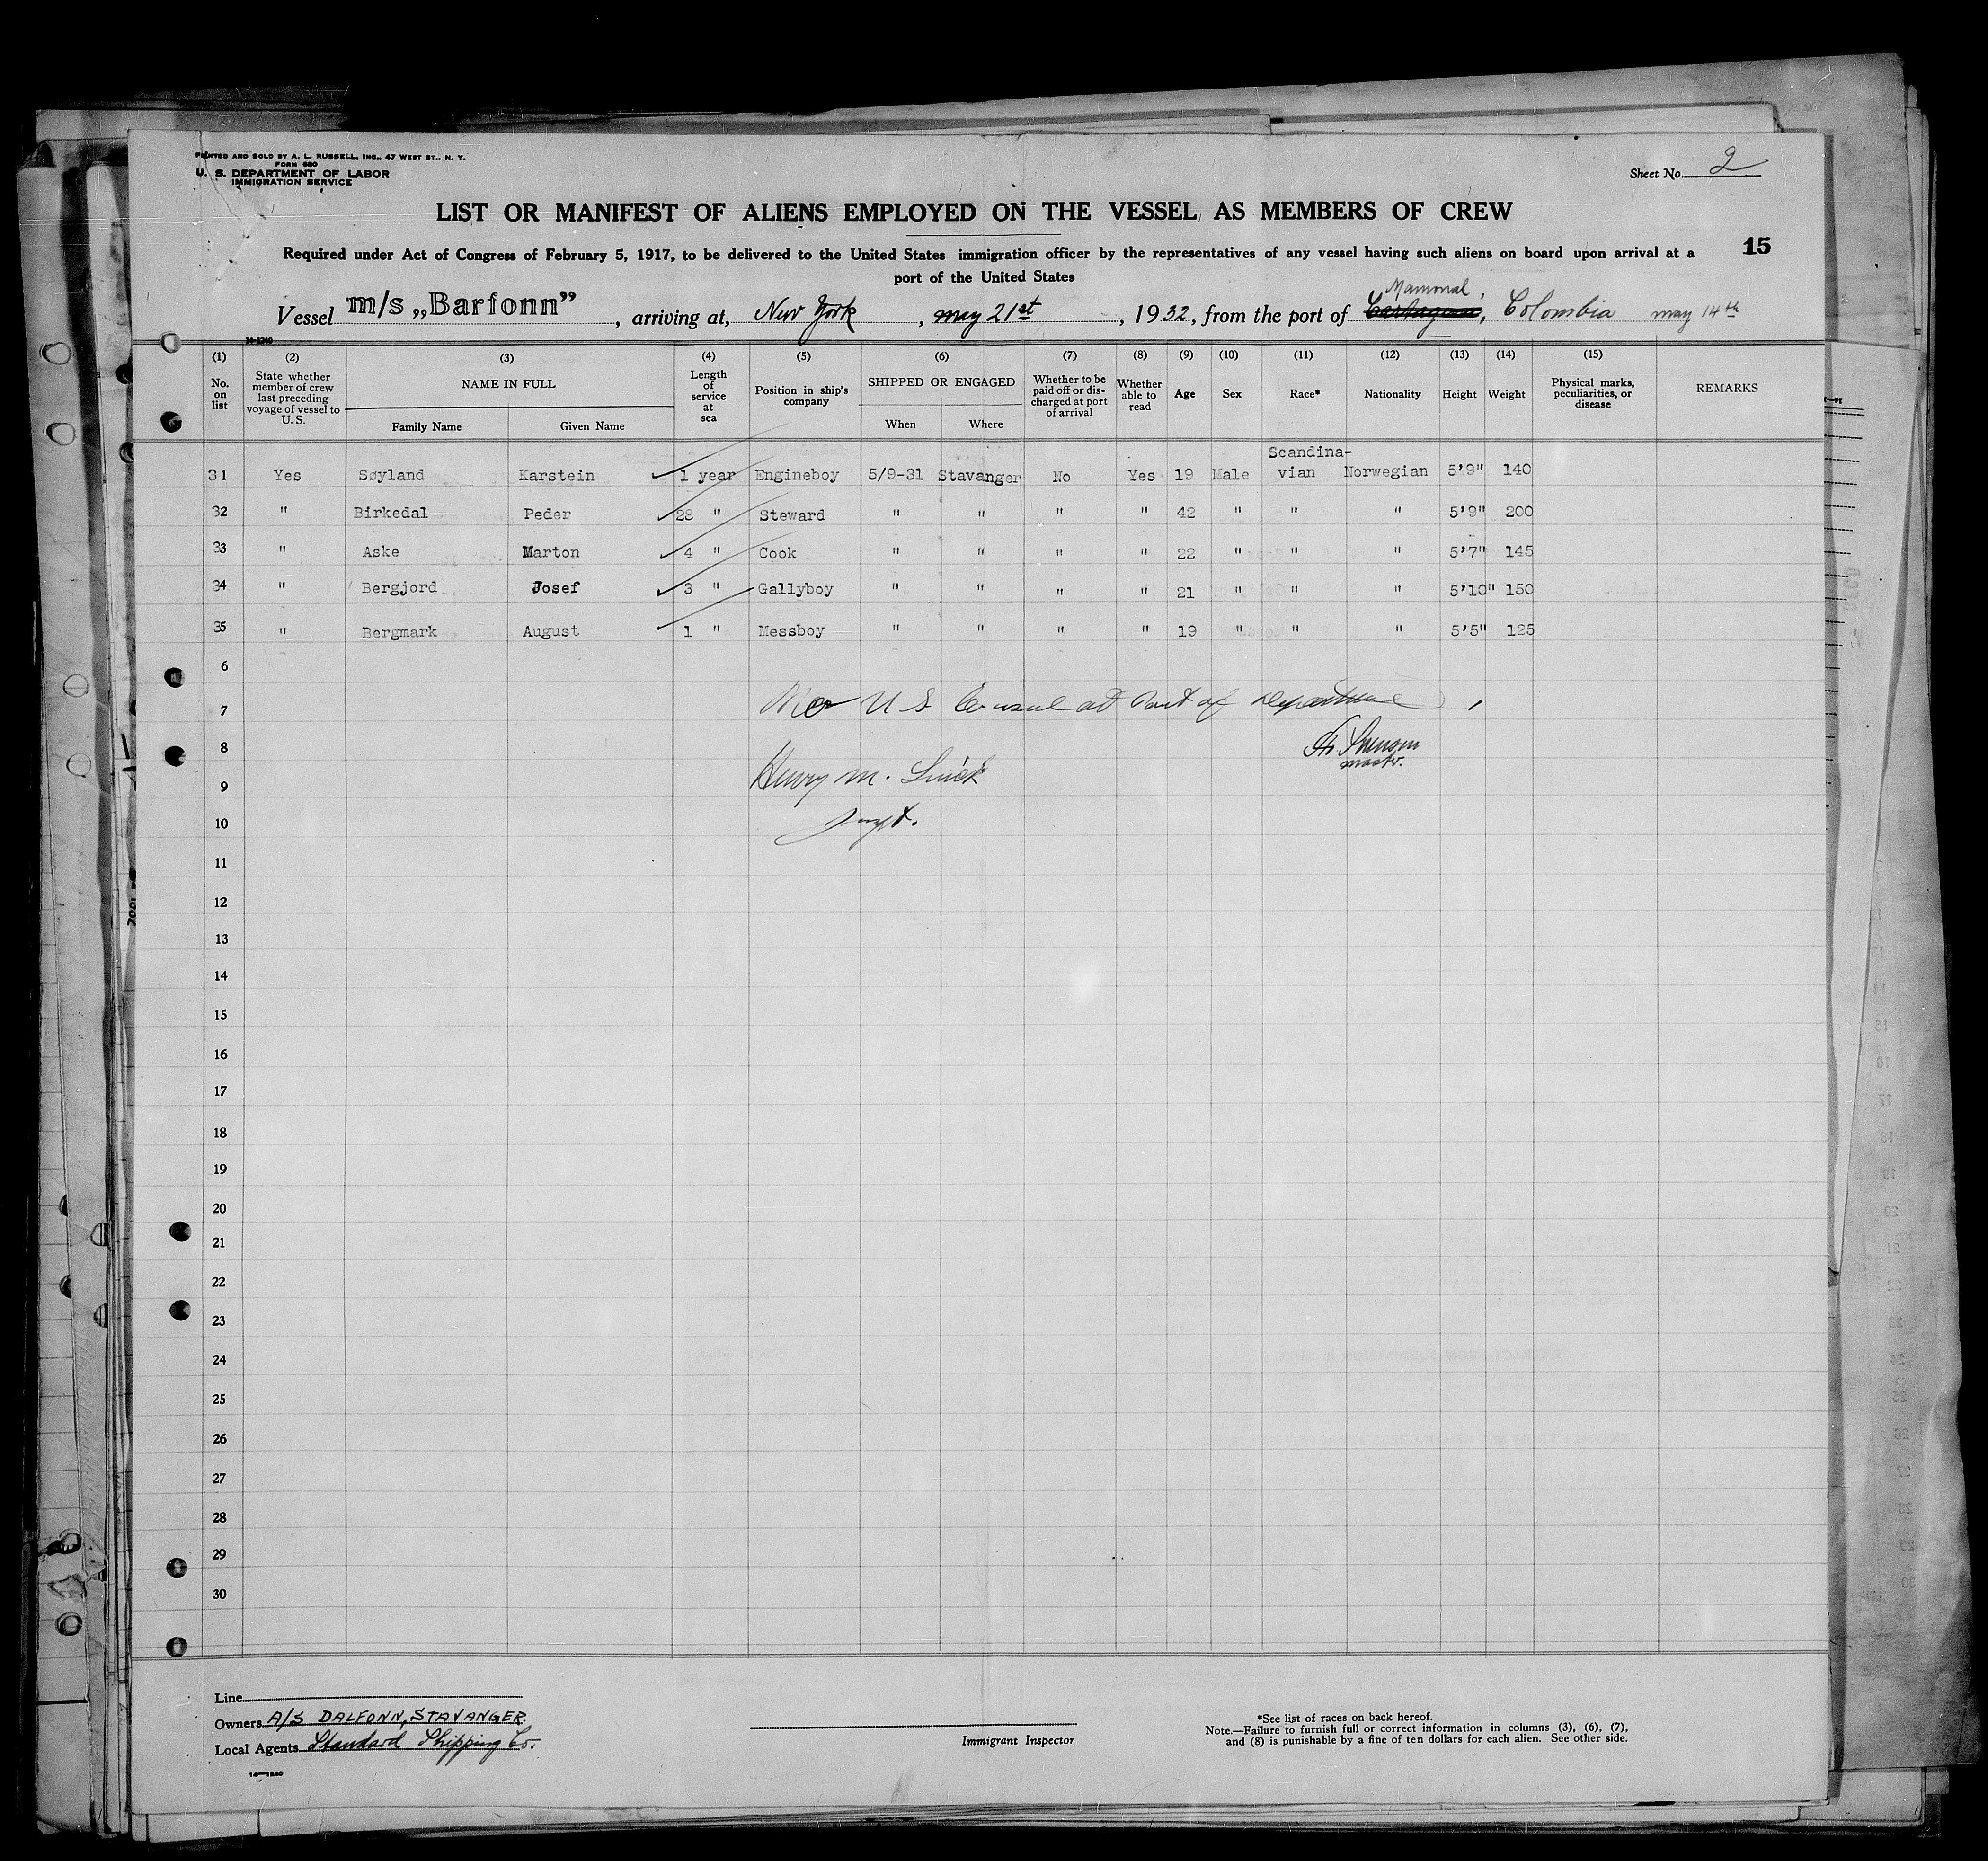 PRINTED AND SOLD BY A. L. RUSSELL, INC., 47 WEST ST., N. Y.
FORM 680
U. S. DEPARTMENT OF LABOR
IMMIGRATION SERVICE
Sheet No. 2
LIST OR MANIFEST OF ALIENS EMPLOYED ON THE VESSEL AS MEMBERS OF CREW
15
Required under Act of Congress of February 5, 1917, to be delivered to the United States immigration officer by the representatives of any vessel having such aliens on board upon arrival at a
port of the United States
Mamonal
Vessel m/s „Barfonn”, arriving at, New York, May 21st, 1932, from the port of Cartagena, Colombia may 14th
14-1240
(1) (2) (3) (4) (5) (6) (7) (8) (9) (10) (11) (12) (13) (14) (15)
No. on list State whether member of crew last preceding voyage of vessel to U. S. NAME IN FULL Family Name Given Name Length of service at sea Position in ship's company SHIPPED OR ENGAGED When Where Whether to be paid off or discharged at port of arrival Whether able to read Age Sex Race* Nationality Height Weight Physical marks, peculiarities, or disease REMARKS
31 Yes Søyland Karstein 1 year Engineboy 5/9-31 Stavanger No Yes 19 Male Scandina-vian Norwegian 5'9" 140
32 " Birkedal Peder 28 " Steward " " " " 42 " " " 5'9" 200
33 " Aske Marton 4 " Cook " " " " 22 " " " 5'7" 145
34 " Bergjord Josef 3 " Gallyboy " " " " 21 " " " 5'10" 150
35 " Bergmark August 1 " Messboy " " " " 19 " " " 5'5" 125
6
7 No U S Consul at Port of Departure
8 master.
9 Henry M.
10
11
12
13
14
15
16
17
18
19
20
21
22
23
24
25
26
27
28
29
30
Line
Owners A/S DALFONN, STAVANGER.
Local Agents Standard Shipping Co.
14—1240
Immigrant Inspector
*See list of races on back hereof.
Note.—Failure to furnish full or correct information in columns (3), (6), (7),
and (8) is punishable by a fine of ten dollars for each alien. See other side.